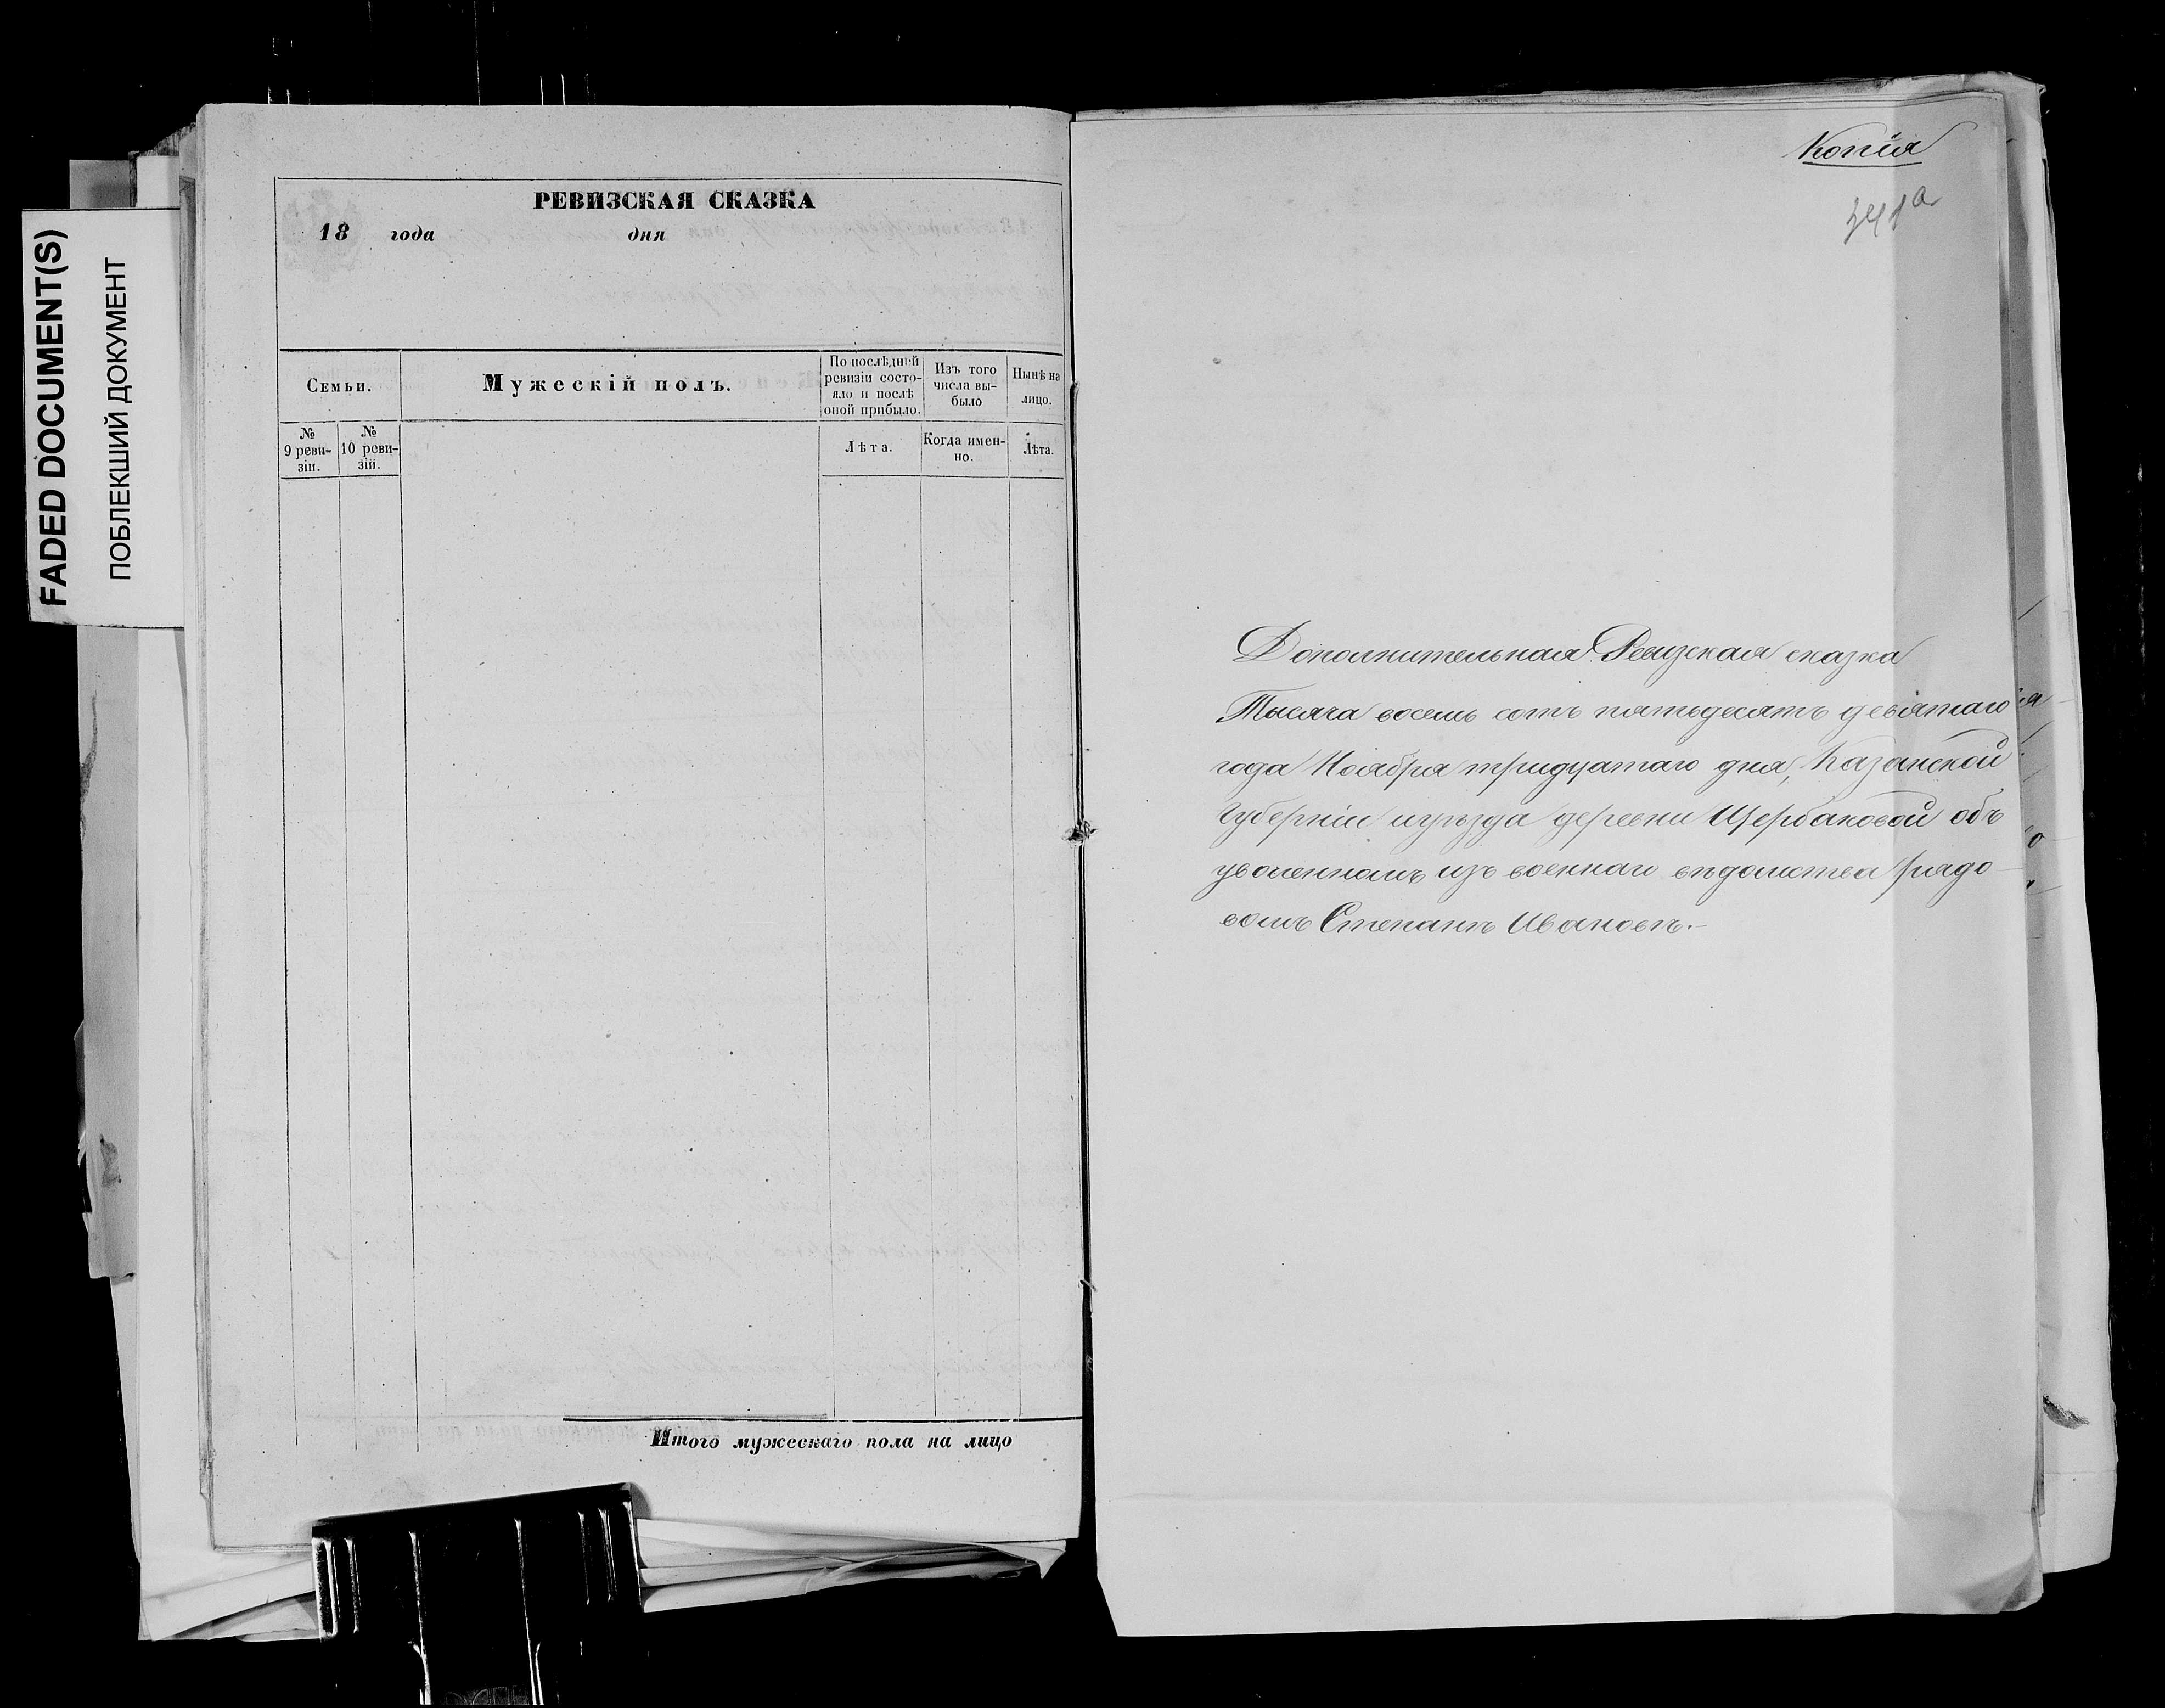 FADED DOCUMENT(S)
ПОБЛЕКШИЙ ДОКУМЕНТ
РЕВИЗСКАЯ СКАЗКА
18 года дня
Семьи.
Мужескій полъ.
По послѣдней
ревизіи состо-
яло и послѣ
оной прибыло.
Изъ того
числа вы-
было
Нынѣ на
лицо.
№
9 реви-
зіи.
№
10 реви-
зіи.
Лѣта.
Когда имен-
но.
Лѣта.
Итого мужескаго пола на лицо
Копія
341а
Дополнительная Ревизская сказка
Тысяча восемь сотъ пятьдесятъ девятаго
года Ноября тридцатаго дня, Казанской
губерніи и уѣзда деревни Щербаковой объ
уволенномъ изъ военнаго вѣдомства рядо-
вомъ Степанѣ Ивановѣ.-